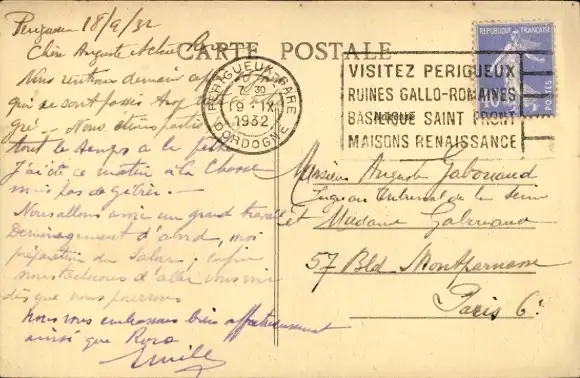 Périgueux 18/9/32
CARTE POSTALE
Chère Auguste et chère
Nous rentrons demain
qui se sont passés
gré. — Nous étions partis
tout le temps à la
J'ai été ce matin à la Chasse
mais pas de gibier. —
Nous allons avoir un grand travail
Déménagement d'abord, moi
préparation du Salon; enfin
nous tâcherons d'aller vous voir
dès que nous pourrons
Nous vous embrassons bien affectueusement
ainsi que Rose
Emile
PERIGUEUX-GARE
7 30
19 - IX
1932
DORDOGNE
VISITEZ PERIGUEUX
RUINES GALLO-ROMAINES
BASILIQUE SAINT FRONT
MAISONS RENAISSANCE
REPUBLIQUE FRANÇAISE
POSTES
Monsieur Auguste
Juge au Tribunal de la Seine
et Madame
57 Bld Montparnasse
Paris 6e